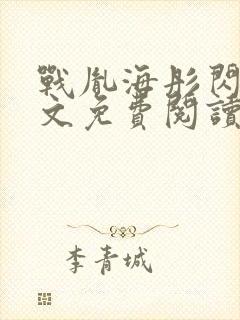 戰胤海彤閃
文免費閱讀
李青城